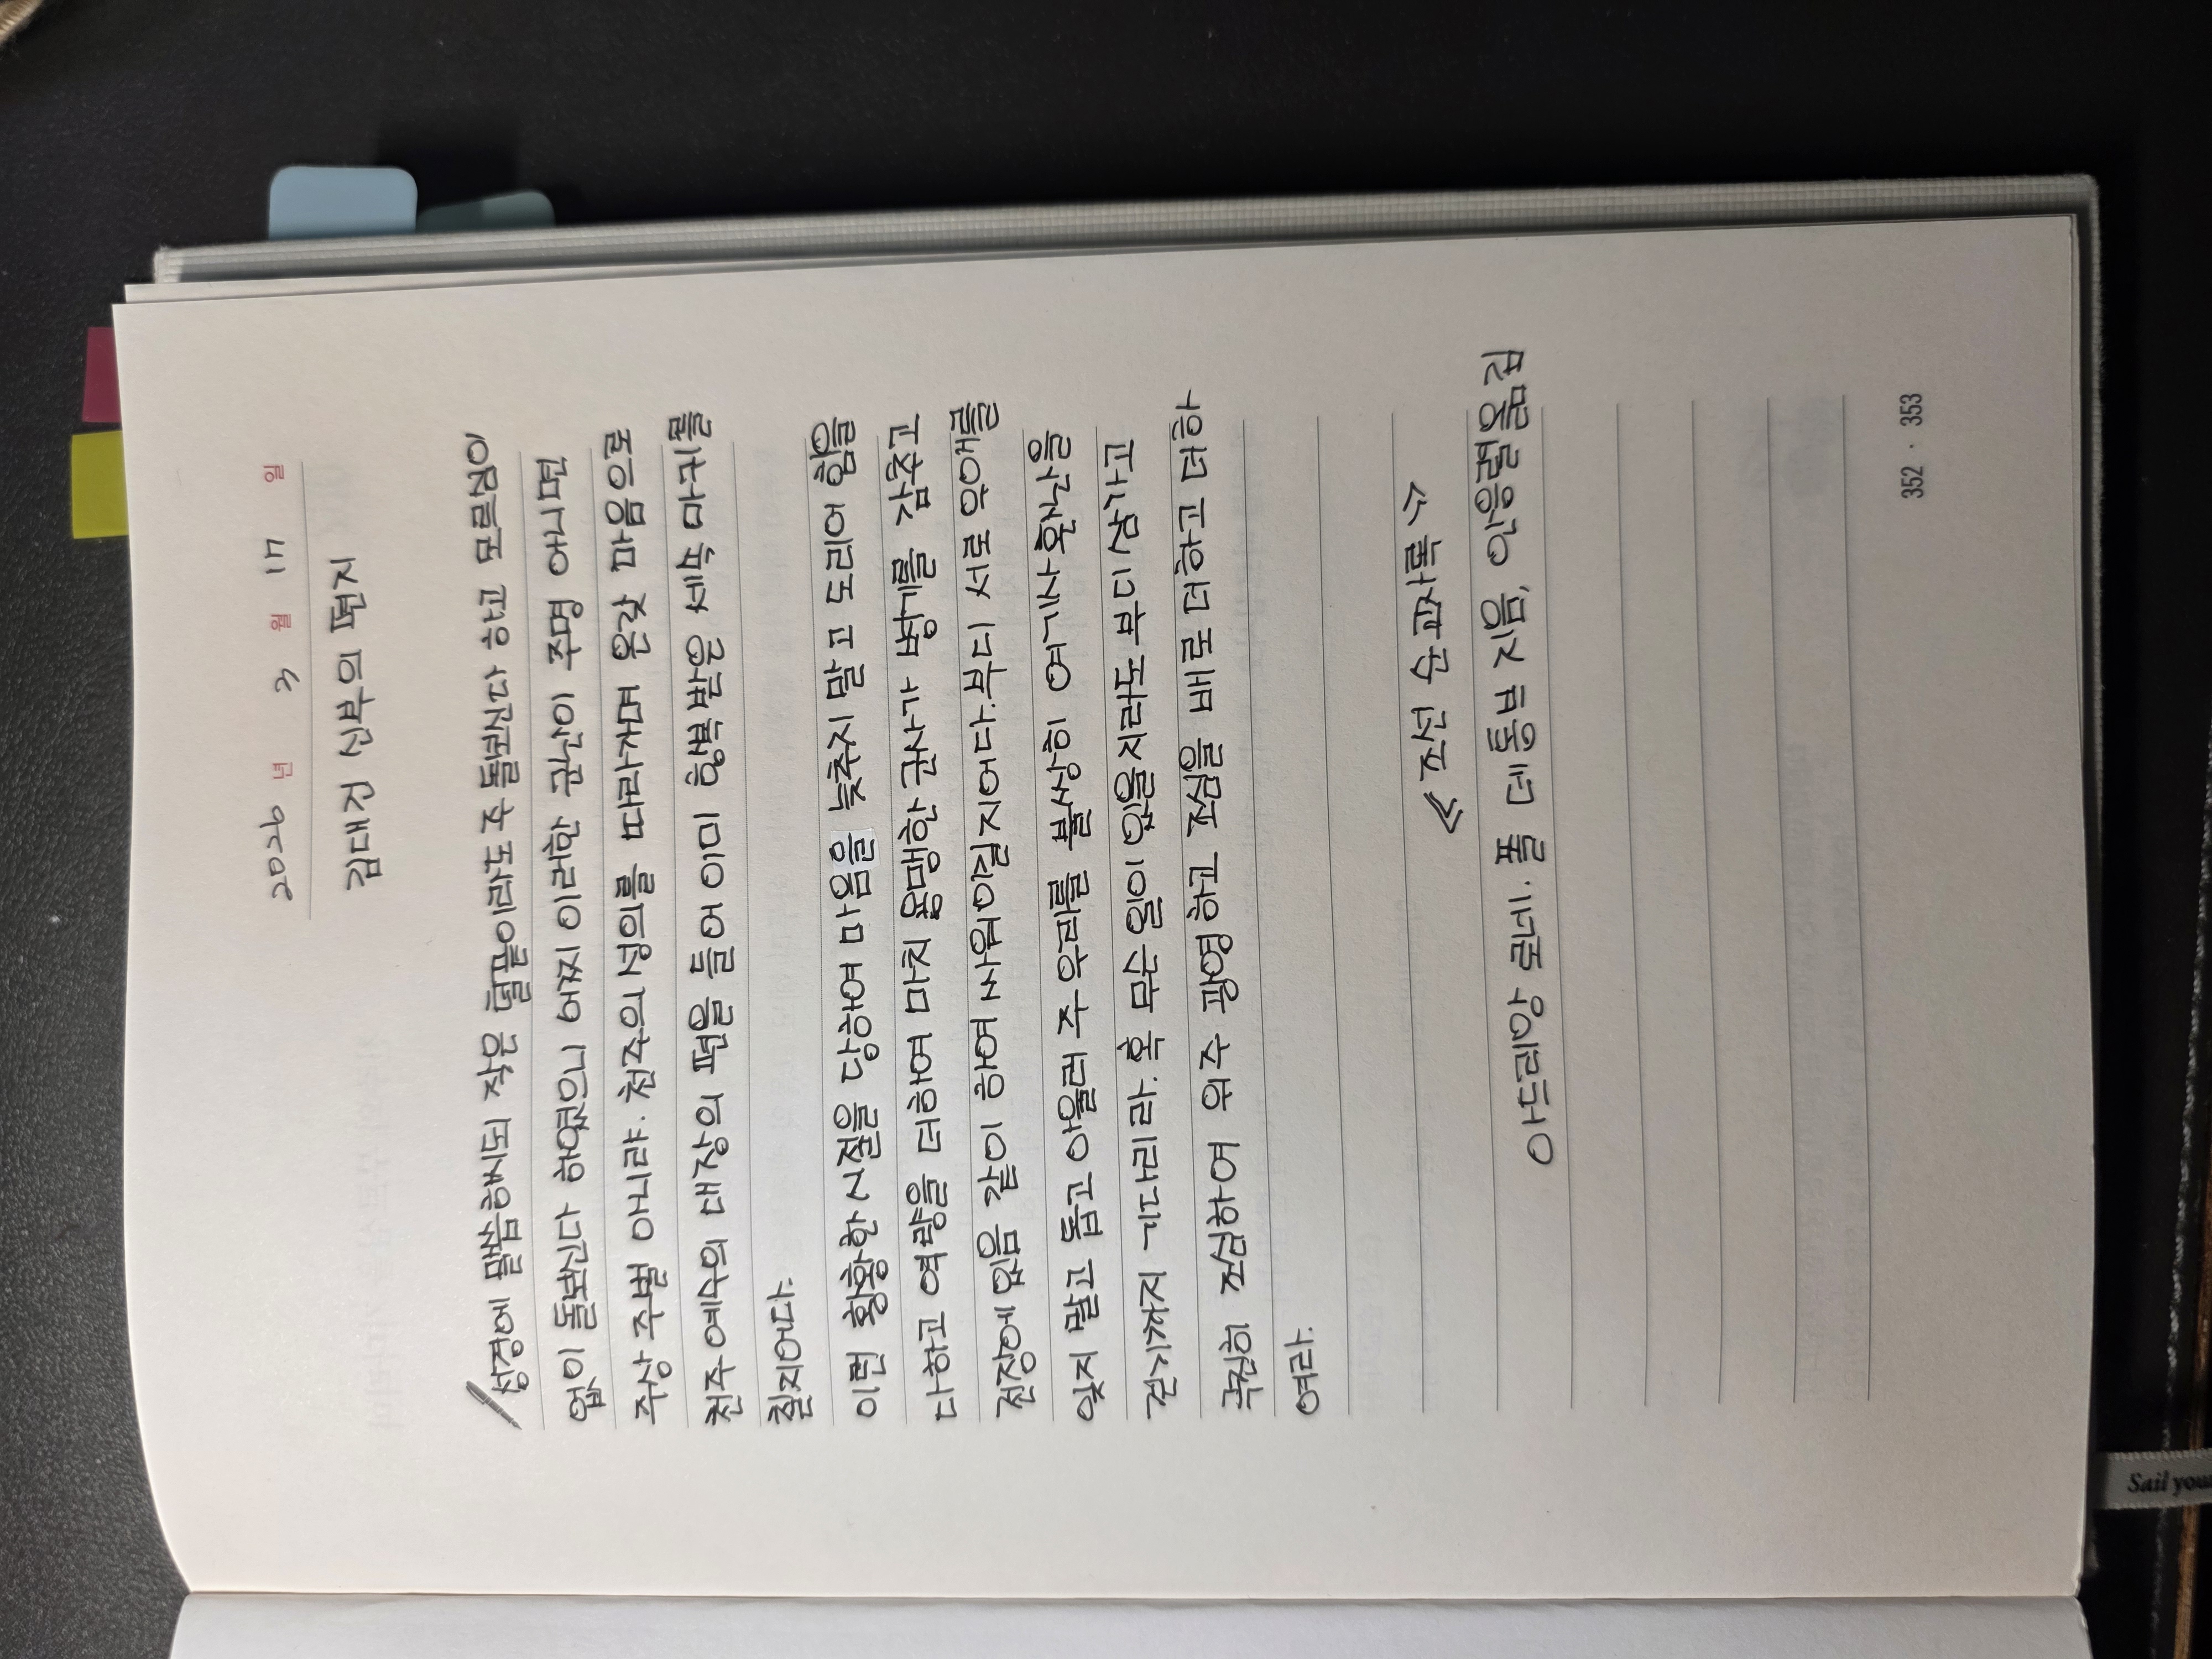 2026 년 3 월 17 일
김대건 신부의 편지
성경에 말씀하시되 작은 털끝이라도 주 돌보신다 하고 모르심이
없이 돌보신다 하였으니 어찌 이러한 군난이 주명 아니면
주상 주벌 아니랴. 천주의 성의를 따라가며 온갖 마음으로
천주 예수의 대장의 편을 들어 이미 항복받은 세속 마귀를
칠지어다.
이런 황황한 시절을 당하여 마음을 늦추지 말고 도리어 힘을
다하고 역량을 더하여 마치 용맹한 군사가 병기를 갖추고
전장에 있음 같이 하여 싸워 이길지어다. 부디 서로 우애를
잊지 말고 돕고 아울러 주 우리를 불쌍히 여기사 환난을
걷기까지 기다리라. 혹 무슨 일이 있을지라도 부디 삼가고
극진히 조심하여 위주 광영하고 조심을 배로 더하고 더하
여라.
《 조선 순교사록 》
아드리앙 로네. 폴 데통부 지음, 안응렬 옮김
352 · 353
Sail your